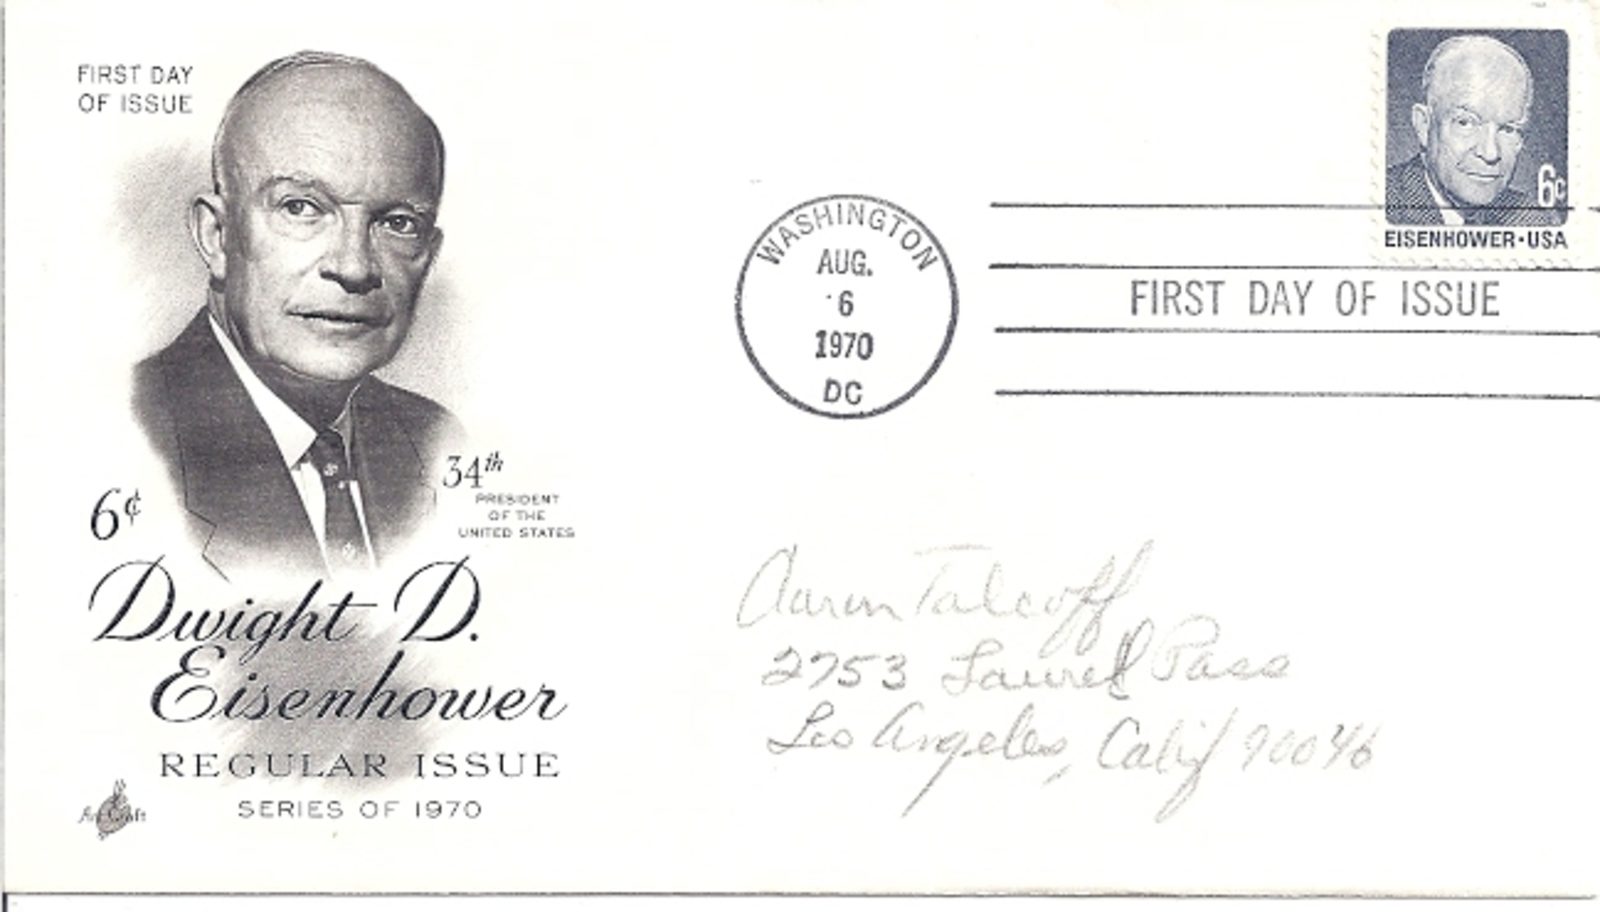 FIRST DAY
OF ISSUE
6¢
34th
PRESIDENT
OF THE
UNITED STATES
Dwight D.
Eisenhower
REGULAR ISSUE
SERIES OF 1970
Art Craft
WASHINGTON
AUG.
6
1970
DC
6c
EISENHOWER·USA
FIRST DAY OF ISSUE
Aaron Talcoff
2753 Laurel Pass
Los Angeles, Calif 90046